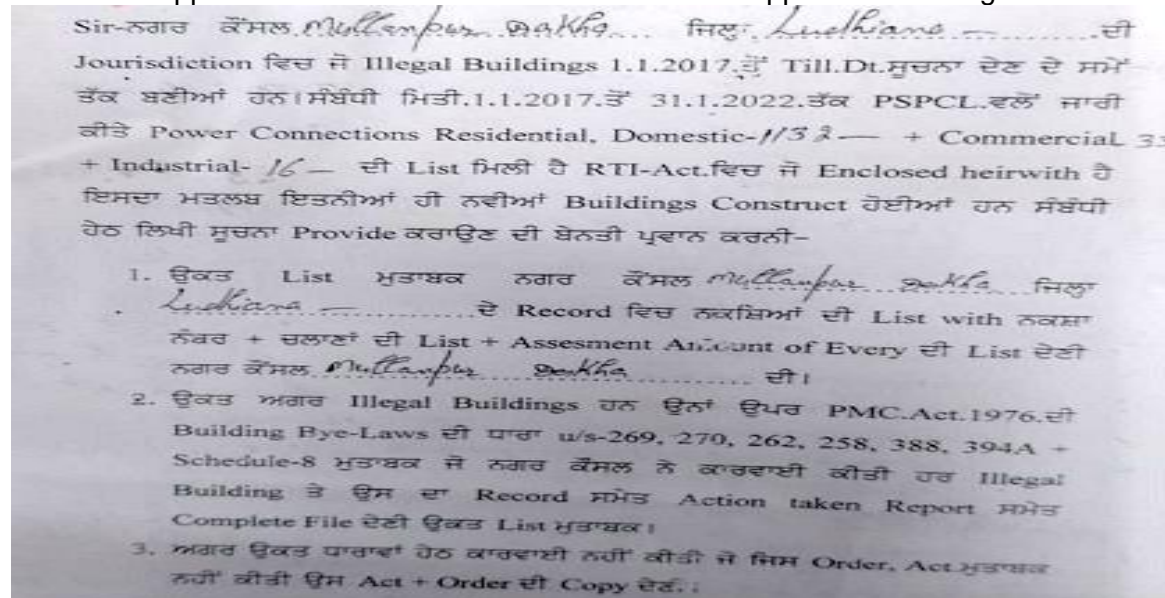 Sir-ਨਗਰ ਕੌਂਸਲ Mullanpur Dakha ਜਿਲ੍ਹਾ Ludhiana ਦੀ
Jourisdiction ਵਿਚ ਜੋ Illegal Buildings 1.1.2017.ਤੋਂ Till.Dt.ਸੂਚਨਾ ਦੇਣ ਦੇ ਸਮੇਂ
ਤੱਕ ਬਣੀਆਂ ਹਨ।ਸੰਬੰਧੀ ਮਿਤੀ.1.1.2017.ਤੋਂ 31.1.2022.ਤੱਕ PSPCL.ਵਲੋਂ ਜਾਰੀ
ਕੀਤੇ Power Connections Residential, Domestic-1132- + Commercial
+ Industrial- 16 - ਦੀ List ਮਿਲੀ ਹੈ RTI-Act.ਵਿਚ ਜੋ Enclosed heirwith ਹੈ
ਇਸਦਾ ਮਤਲਬ ਇਤਨੀਆਂ ਹੀ ਨਵੀਆਂ Buildings Construct ਹੋਈਆਂ ਹਨ ਸੰਬੰਧੀ
ਹੇਠ ਲਿਖੀ ਸੂਚਨਾ Provide ਕਰਾਉਣ ਦੀ ਬੇਨਤੀ ਪ੍ਰਵਾਨ ਕਰਨੀ-
1. ਉਕਤ List ਮੁਤਾਬਕ ਨਗਰ ਕੌਂਸਲ Mullanpur Dakha ਜਿਲ੍ਹਾ
Ludhiana ਦੇ Record ਵਿਚ ਨਕਸ਼ਿਆਂ ਦੀ List with ਨਕਸ਼ਾ
ਨੰਬਰ + ਚਲਾਣਾਂ ਦੀ List + Assesment Amount of Every ਦੀ List ਦੇਣੀ
ਨਗਰ ਕੌਂਸਲ Mullanpur Dakha ਦੀ।
2. ਉਕਤ ਅਗਰ Illegal Buildings ਹਨ ਉਨਾਂ ਉਪਰ PMC.Act.1976.ਦੀ
Building Bye-Laws ਦੀ ਧਾਰਾ u/s-269, 270, 262, 258, 388, 394A +
Schedule-8 ਮੁਤਾਬਕ ਜੋ ਨਗਰ ਕੌਂਸਲ ਨੇ ਕਾਰਵਾਈ ਕੀਤੀ ਹਰ Illegal
Building ਤੇ ਉਸ ਦਾ Record ਸਮੇਤ Action taken Report ਸਮੇਤ
Complete File ਦੇਣੀ ਉਕਤ List ਮੁਤਾਬਕ।
3. ਅਗਰ ਉਕਤ ਧਾਰਾਵਾਂ ਹੇਠ ਕਾਰਵਾਈ ਨਹੀਂ ਕੀਤੀ ਜੋ ਜਿਸ Order, Act.ਮੁਤਾਬਕ
ਨਹੀਂ ਕੀਤੀ ਉਸ Act + Order ਦੀ Copy ਦੇਣੀ।